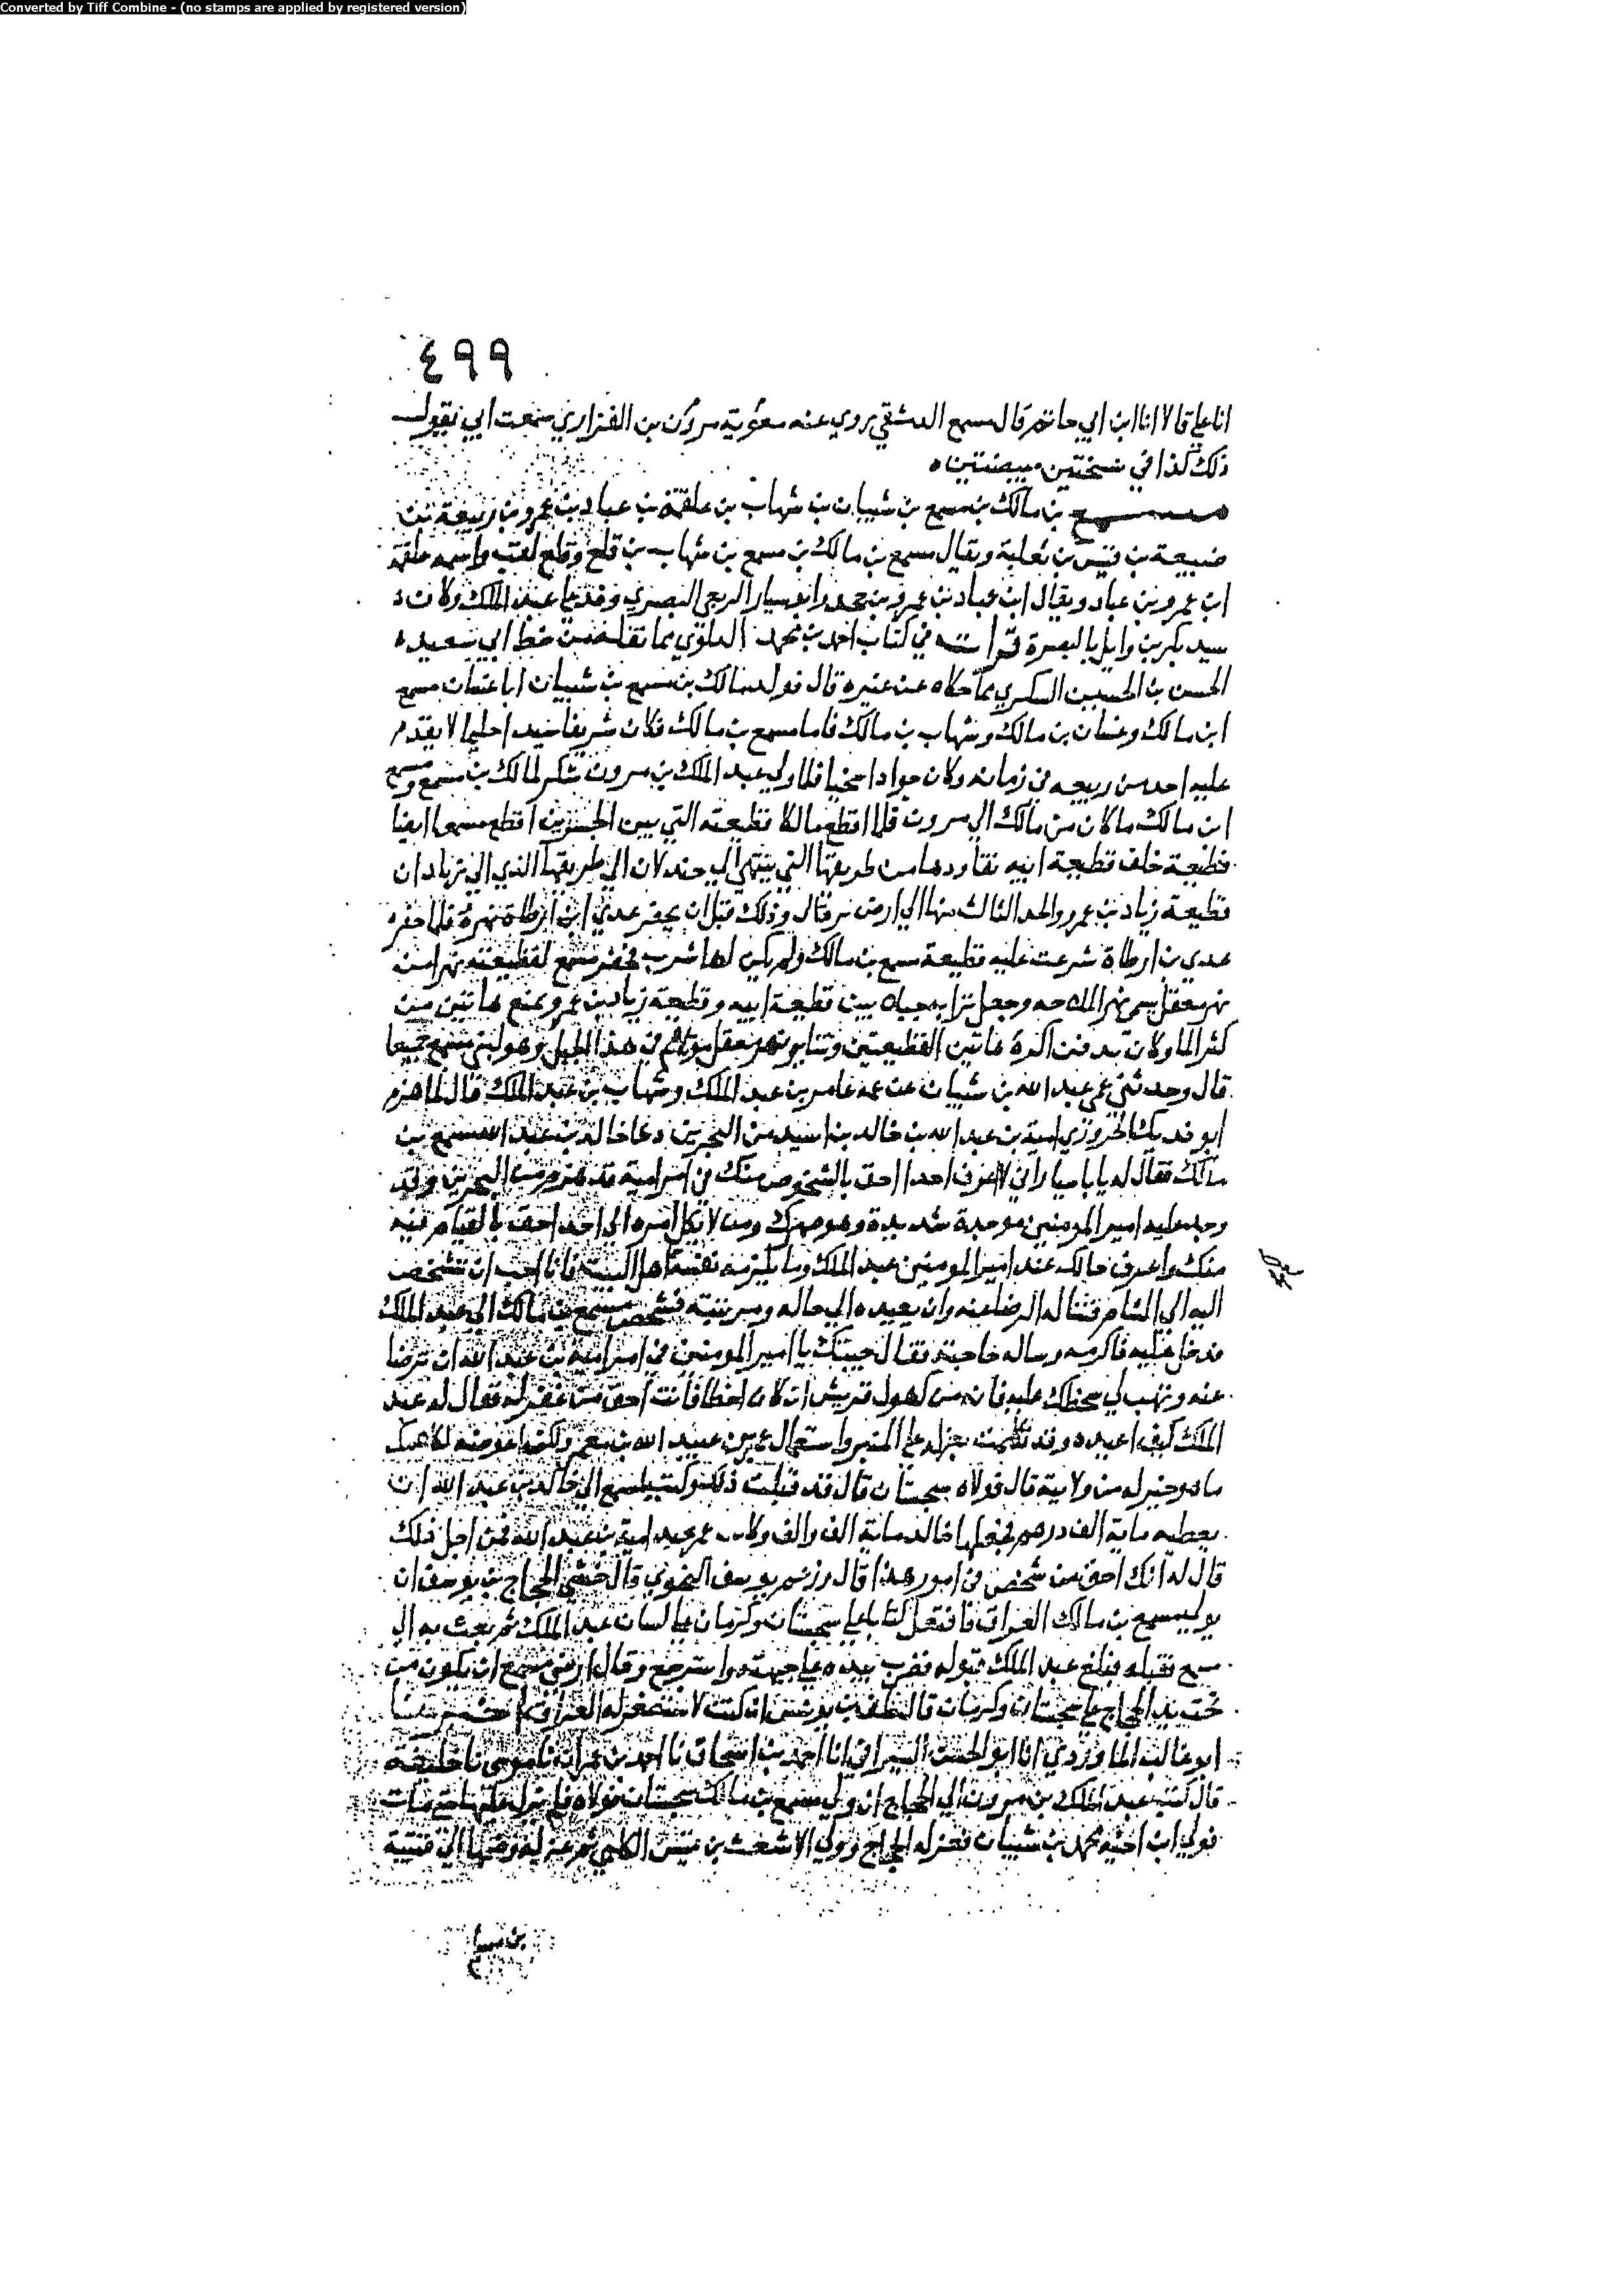 Converted by Tiff Combine - (no stamps are applied by registered version)
٤٩٩
انا علي قالا انا ابن ابي حاتم قال مسمع الدمشقي يروي عنه معوية مروان بن الفزاري سمعت ابي يقول
ذلك كذا في نسختين مبيضتين ه
مسمع بن مالك بن مسمع بن شيبان بن شهاب بن علقمة بن عباد بن عمرو بن ربيعة بن
ضبيعة بن قيس بن ثعلبة ويقال مسمع بن مالك بن مسمع بن شهاب بن قلع وقلع لقب واسمه علقمة
ابن عمرو بن عباد ويقال ابن عباد بن عمرو بن جحدر ابو سيار الربعي البصري وفد على عبد الملك وكان
سيد بكر بن وايل بالبصرة قرات في كتاب احمد بن محمد الدلوي مما نقله من خط ابي سعيد ه
الحسن بن الحسين السكري مما حكاه عن غيره قال فولد مالك بن مسمع بن شيبان ابا غسان مسمع
ابن مالك وغسان بن مالك وشهاب بن مالك فاما مسمع بن مالك فكان شريفا سيدا حليما لا يقدم
عليه احد من ربيعه في زمانه وكان جوادا سخيا فلما ولي عبد الملك بن مرون شكر لمالك بن مسمع ومسمع
ابن مالك ما كان من مالك الي مرون فلما اقطع مالكا قطيعته التي بين الجسرين اقطع مسمعا ايضا
قطيعة خلف قطيعة ابيه من طريقها التي ينتهي الي الي طريقها الذي الي زيادان
قطيعة زياد بن عمرو والحد الثالث منها الي ارض وذلك قبل ان يحفر عدي ابن ارطاة نهره فلما حفر
عدي بن ارطاة شرعت عليه قطيعة مسمع بن مالك ولم يكن لها شرب فحفر مسمع لقطيعته نهرا من
نهر معقل يسمى نهر وجعل ترابه جبلا بين قطيعة ابيه وقطيعة زياد بن عمرو يمنع هاتين من
كثر الما وكان يدفن اكرة هاتين القطيعتين نهر معقل موتاهم في هذا الجبل وهو لبني مسمع جميعا
قال وحدثني عمي عبد الله بن شيبان عن عمه عامر بن عبد الملك وشهاب بن عبد الملك قال لما هزم
ابو فديك الحروري امية بن عبد الله بن خالد بن اسيد من البحرين دعا خالد بن عبد الله مسمع بن
مالك فقال له يا با سيار اني لا اعرف احدا احق بالشخوص منك في امر امية قد هزم من البحرين وقد
وجد عليه امير المومنين موجدة شديدة وهو صهرك ومن لا يكل امره الي احد احق بالقيام فيه
منك واعرف حالك عند امير المومنين عبد الملك وما يلزمه نفسه اهل البيت فانا احب ان تشخص
اليه الي الشام فتساله الرضا عنه وان يعيده الي حاله ومرتبته فشخص مسمع بن مالك الي عبد الملك
فدخل عليه فاكرمه وساله حاجته فقال جيتك يا امير المومنين في امر امية بن عبد الله ان ترضا
عنه وتهب لي سخطك عليه فانه من كهول قريش ان كان اخطا فانت احق من غفر له فقال له عبد
الملك كيف اعيده وقد تكلمت بعزله على المنبر واستعمال عمر بن عبيد الله بن معمر ولكن اعوضه لكلامك
ما هو خير له من ولايته قال فولاه سجستان قال قد قبلت ذلك وكتب لمسمع الي خالد بن عبد الله ان
يعطيه ماية الف درهم فجعلها خالد ماية الف والف وكانت امية بن عبد الله فمن اجل ذلك
قال له انك احق من شخص في امور هذا قال يوسف النحوي قال خشي الحجاج بن يوسف ان
يولي مسمع بن مالك العراق فافتعل كتابا على سجستان وكرمان على لسان عبد الملك ثم بعث به الي
مسمع فقبله فبلغ عبد الملك قبوله فضرب بيده على جبهته واسترجع وقال ارضي مسمع ان يكون من
تحت يد الحجاج على سجستان وكرمان قال خلف بن يونس ان كنت لاستصغر له العراق
ابو غالب الماوردي انا ابو الحسن السيرافي انا احمد بن اسحاق نا احمد بن عمران نا موسى نا خليفة
قال كتب عبد الملك بن مرون الي الحجاج ان ولي مسمع بن مالك سجستان فولاه فلم يزل عليها حتى مات
فولي ابن اخيه محمد بن شيبان فعزله الحجاج وولي الاشعث بن الكلبي ثم عزله وضمها الي قتيبة
بن مسلم